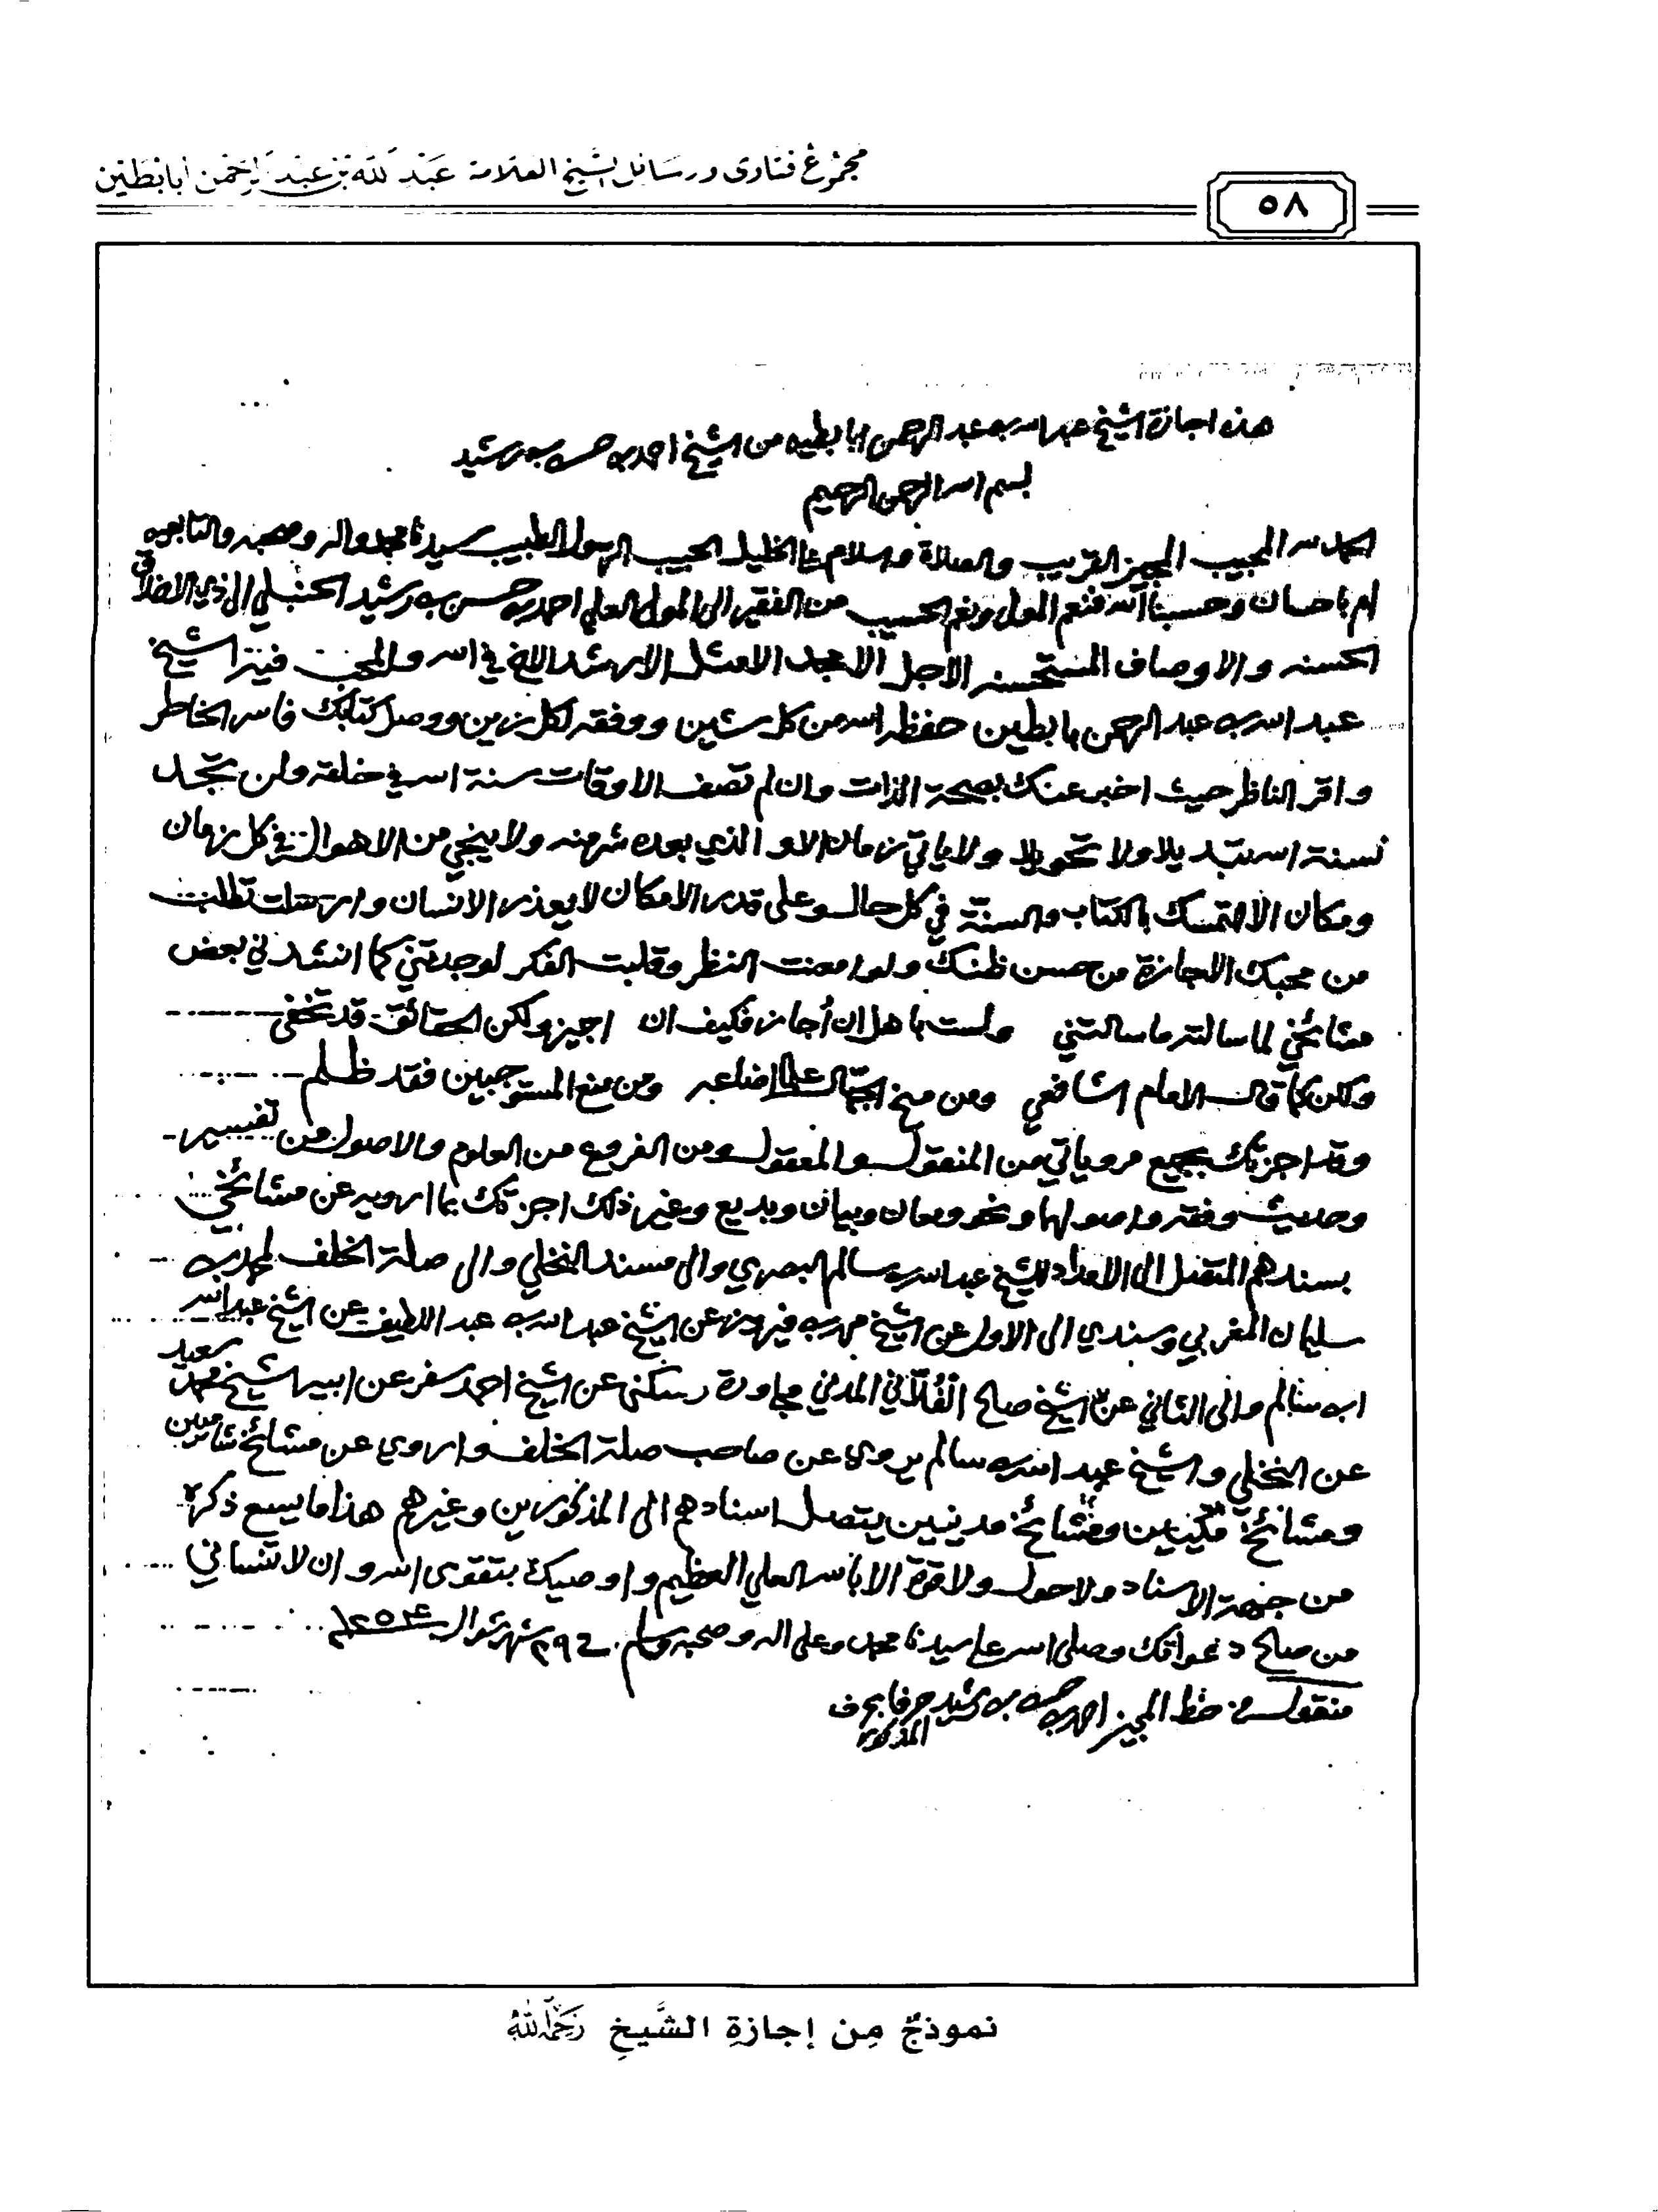 مجموع فتاوى ورسائل الشيخ العلامة عبد الله بن عبد الرحمن أبابطين
٥٨
هذه اجازة الشيخ عبد الله بن عبد الرحمن ابابطين من الشيخ احمد بن حسن بن رشيد
بسم الله الرحمن الرحيم
الحمد لله المجيب المجيز القريب والصلاة والسلام على الخليل الحبيب الرسول الطبيب سيدنا محمد واله وصحبه والتابعين
لهم باحسان وحسبنا الله فنعم المولى ونعم الحسيب من الفقير الى المولى العلي احمد بن حسن بن رشيد الحنبلي الى ذي الاخلاق
الحسنه والاوصاف المستحسنه الاجل الامجد الامثل الارشد الاخ في الله والمحب فيه الشيخ
عبد الله بن عبد الرحمن بابطين حفظه الله من كل شين ووفقه لكل زين ووصل كتابك فاسر الخاطر
واقر الناظر حيث اخبر عنك بصحة الذات وان لم تصف الاوقات سنة الله في خلقه ولن تجد
لسنة الله تبديلا ولا تحويلا ولا ياتي زمان الا و الذي بعده شر منه ولا ينجي من الاهوال في كل زمان
ومكان الا التمسك بالكتاب والسنة في كل حال وعلى قدر الامكان لا يعذر الانسان وارسلت تطلب
من محبك الاجازة من حسن ظنك ولو امعنت النظر وقلبت الفكر لوجدتني كما انشدني بعض
مشائخي لما سالته ما سالتني ولست باهل ان أجاز فكيف ان اجيز ولكن الحقائق قد تخفى
ولكن كما قال الامام الشافعي ومن منح الجهال علما اضاعه ومن منع المستوجبين فقد ظلم
وقد اجزتك بجميع مروياتي من المنقول والمعقول ومن الفروع من العلوم والاصول من تفسير
وحديث وفقه واصولها ونحو ومعان وبيان وبديع وغير ذلك اجزتك بما ارويه عن مشائخي
بسندهم المتصل الى الامداد للشيخ عبد الله بن سالم البصري والى مسند النخلي والى صلة الخلف لمحمد بن
سليمان المغربي وسندي الى الاول عن الشيخ محمد بن فيروز عن الشيخ عبد الله بن عبد اللطيف عن الشيخ عبد الله
ابن سالم والى الثاني عن الشيخ صالح الفُلَّاني المدني مجاورة وسكنى عن الشيخ احمد سفر عن ابيه الشيخ محمد سعيد
عن النخلي والشيخ عبد الله بن سالم يروي عن صاحب صلة الخلف واروي عن مشائخ شاميين
ومشائخ مكيين ومشائخ مدنيين يتصل اسنادهم الى المذكورين وغيرهم هذا ما يسع ذكره
من جهة الاسناد ولا حول ولا قوة الا بالله العلي العظيم واوصيك بتقوى الله وان لا تنساني
من صالح دعواتك وصلى الله على سيدنا محمد وعلى اله وصحبه وسلم في ٢٩ شهر شوال
منقول من خط المجيز احمد بن حسن بن رشيد حرفا بحرف
المذكور
نموذجٌ مِن إجازةِ الشَّيخِ رَحِمَهُ اللهُ